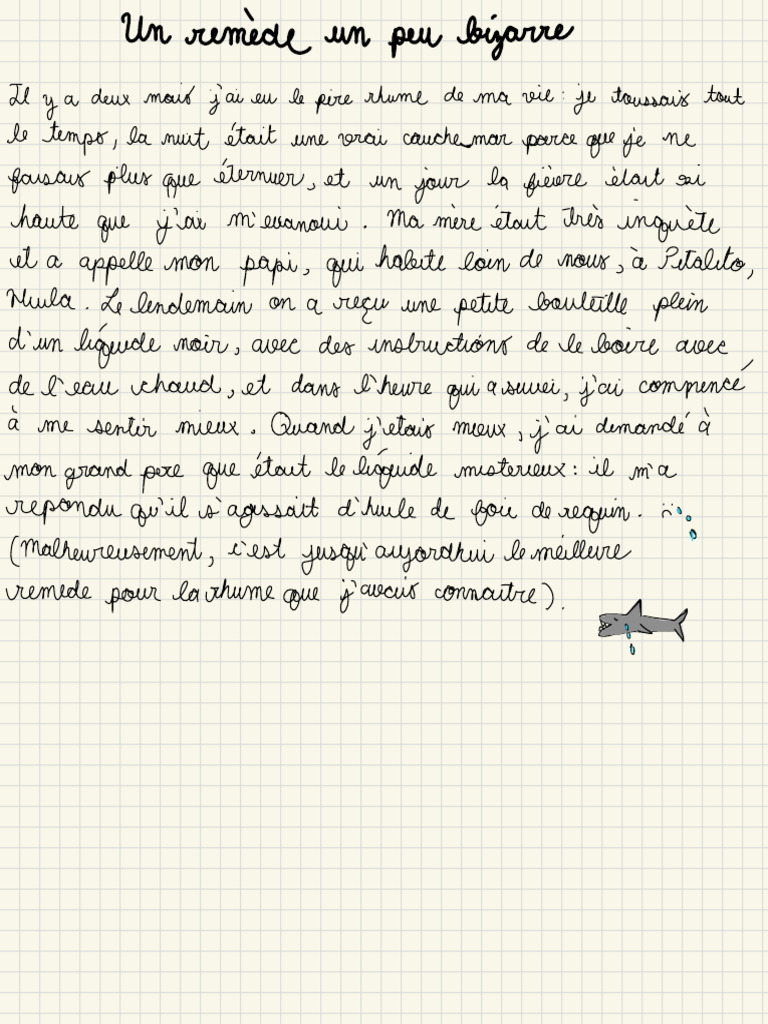 Un remède un peu bizarre
Il y a deux mois j'ai eu le pire rhume de ma vie: je toussais tout
le temps, la nuit était une vrai cauchemar parce que je ne
faisais plus que éternuer, et un jour la fièvre était si
haute que j'ai m'evanoui. Ma mère était très inquète
et a appelle mon papi, qui habite loin de nous, à Pitalito,
Huila. Le lendemain on a reçu une petite bouteille plein
d'un liquide noir, avec des instructions de le boire avec
de l'eau chaud, et dans l'heure qui a suivi, j'ai compencé
à me sentir mieux. Quand j'etais mieux, j'ai demandé à
mon grand pere que était le liquide misterieux: il m'a
repondu qu'il s'agissait d'huile de foie de requin. :(
(Malheureusement, c'est jusqu'aujordhui le meilleure
remede pour la rhume que j'avais connaitre).